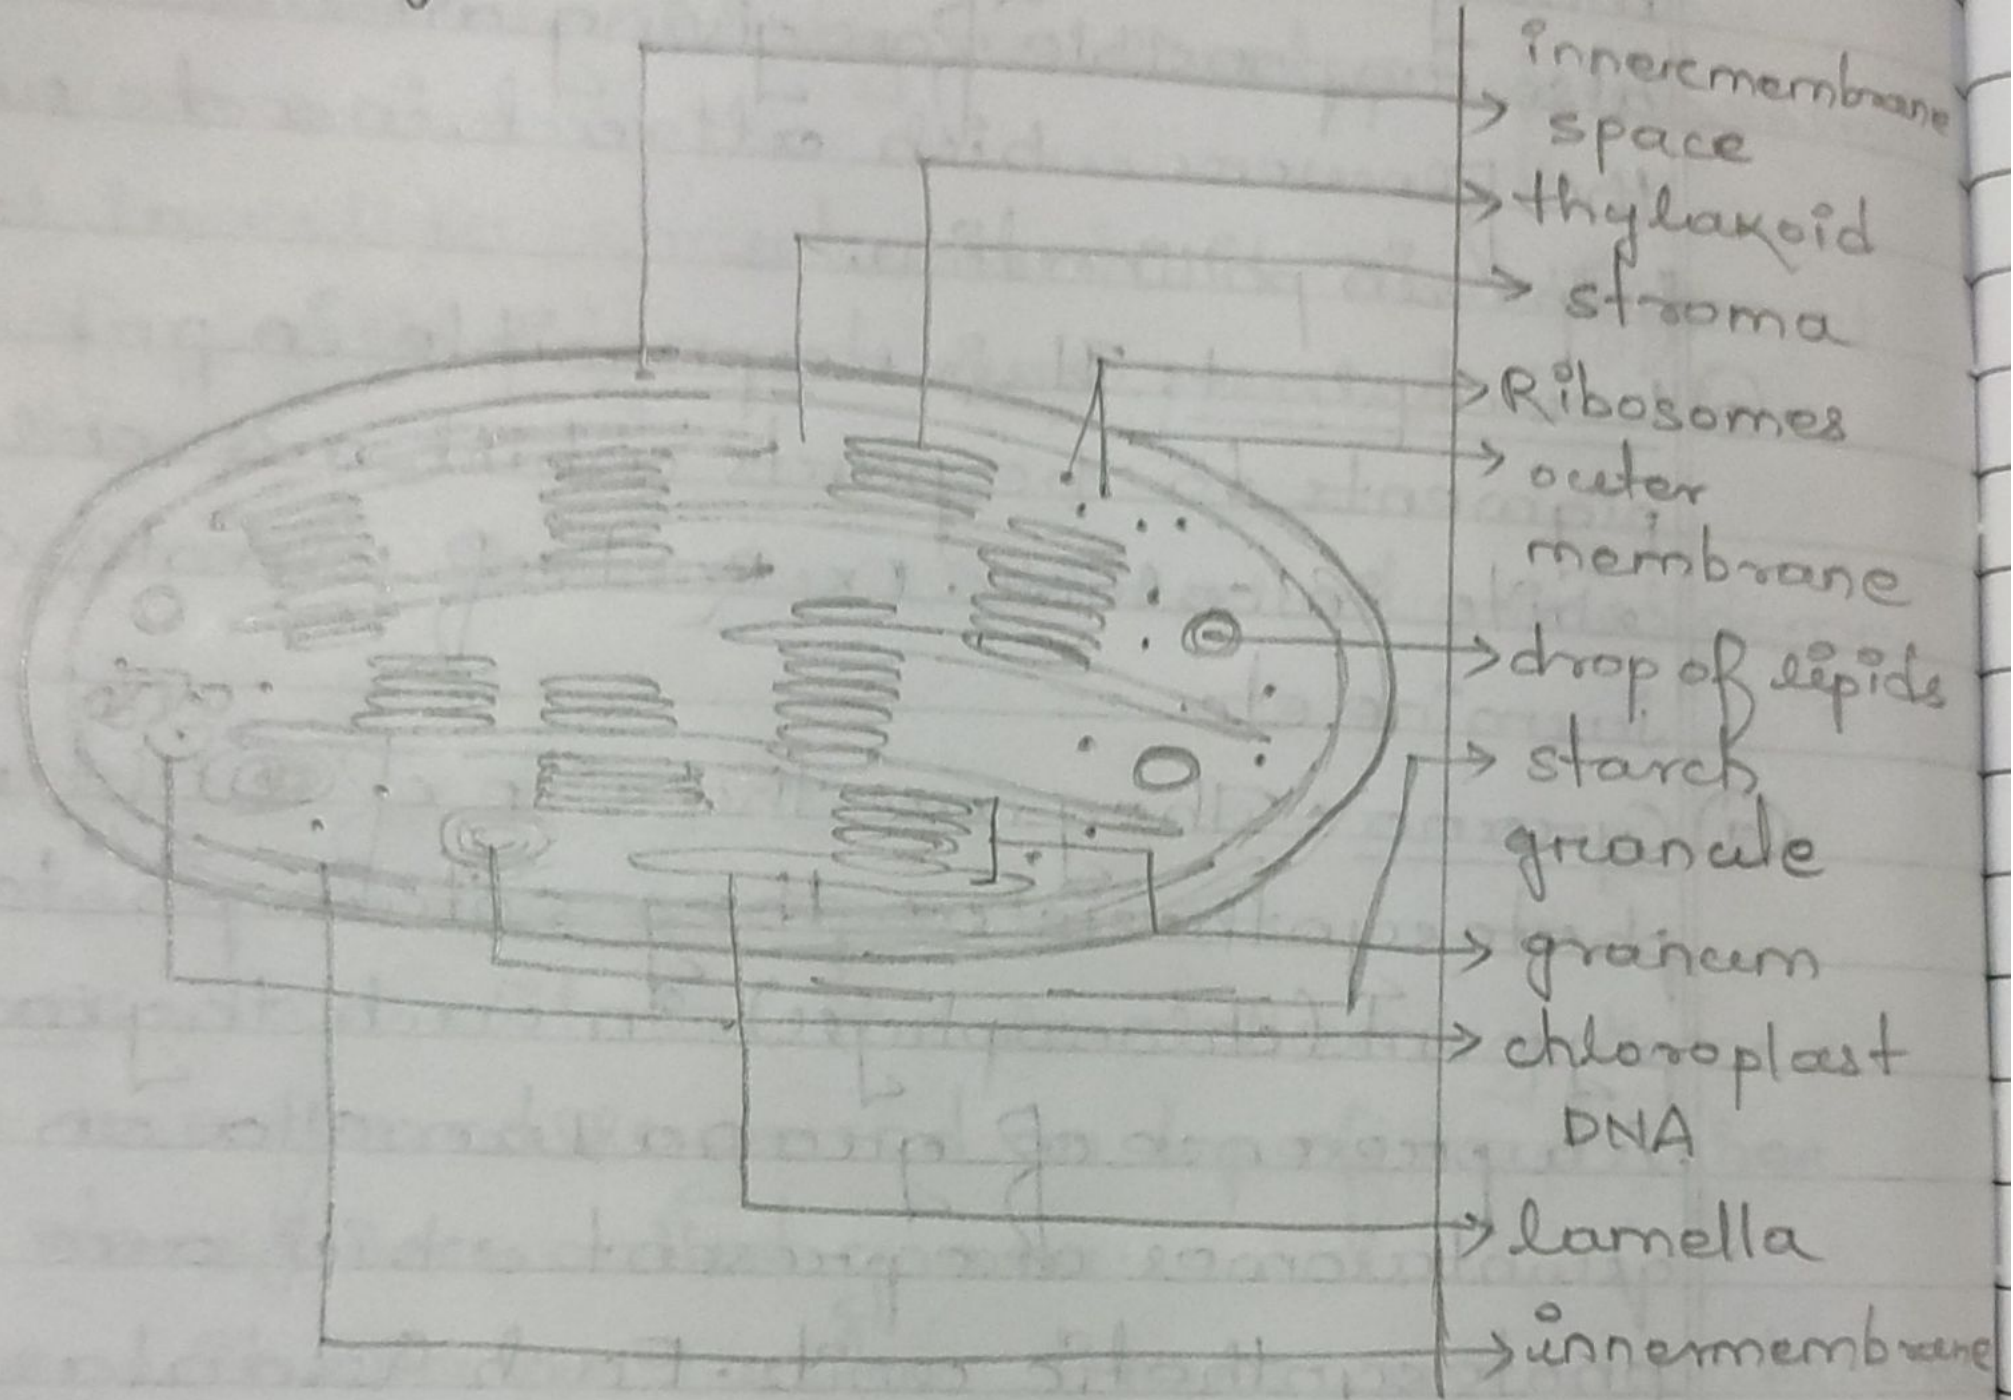 innermembrane
space
thylakoid
stroma
Ribosomes
outer
membrane
drop of lipids
starch
granule
granum
chloroplast
DNA
lamella
innermembrane